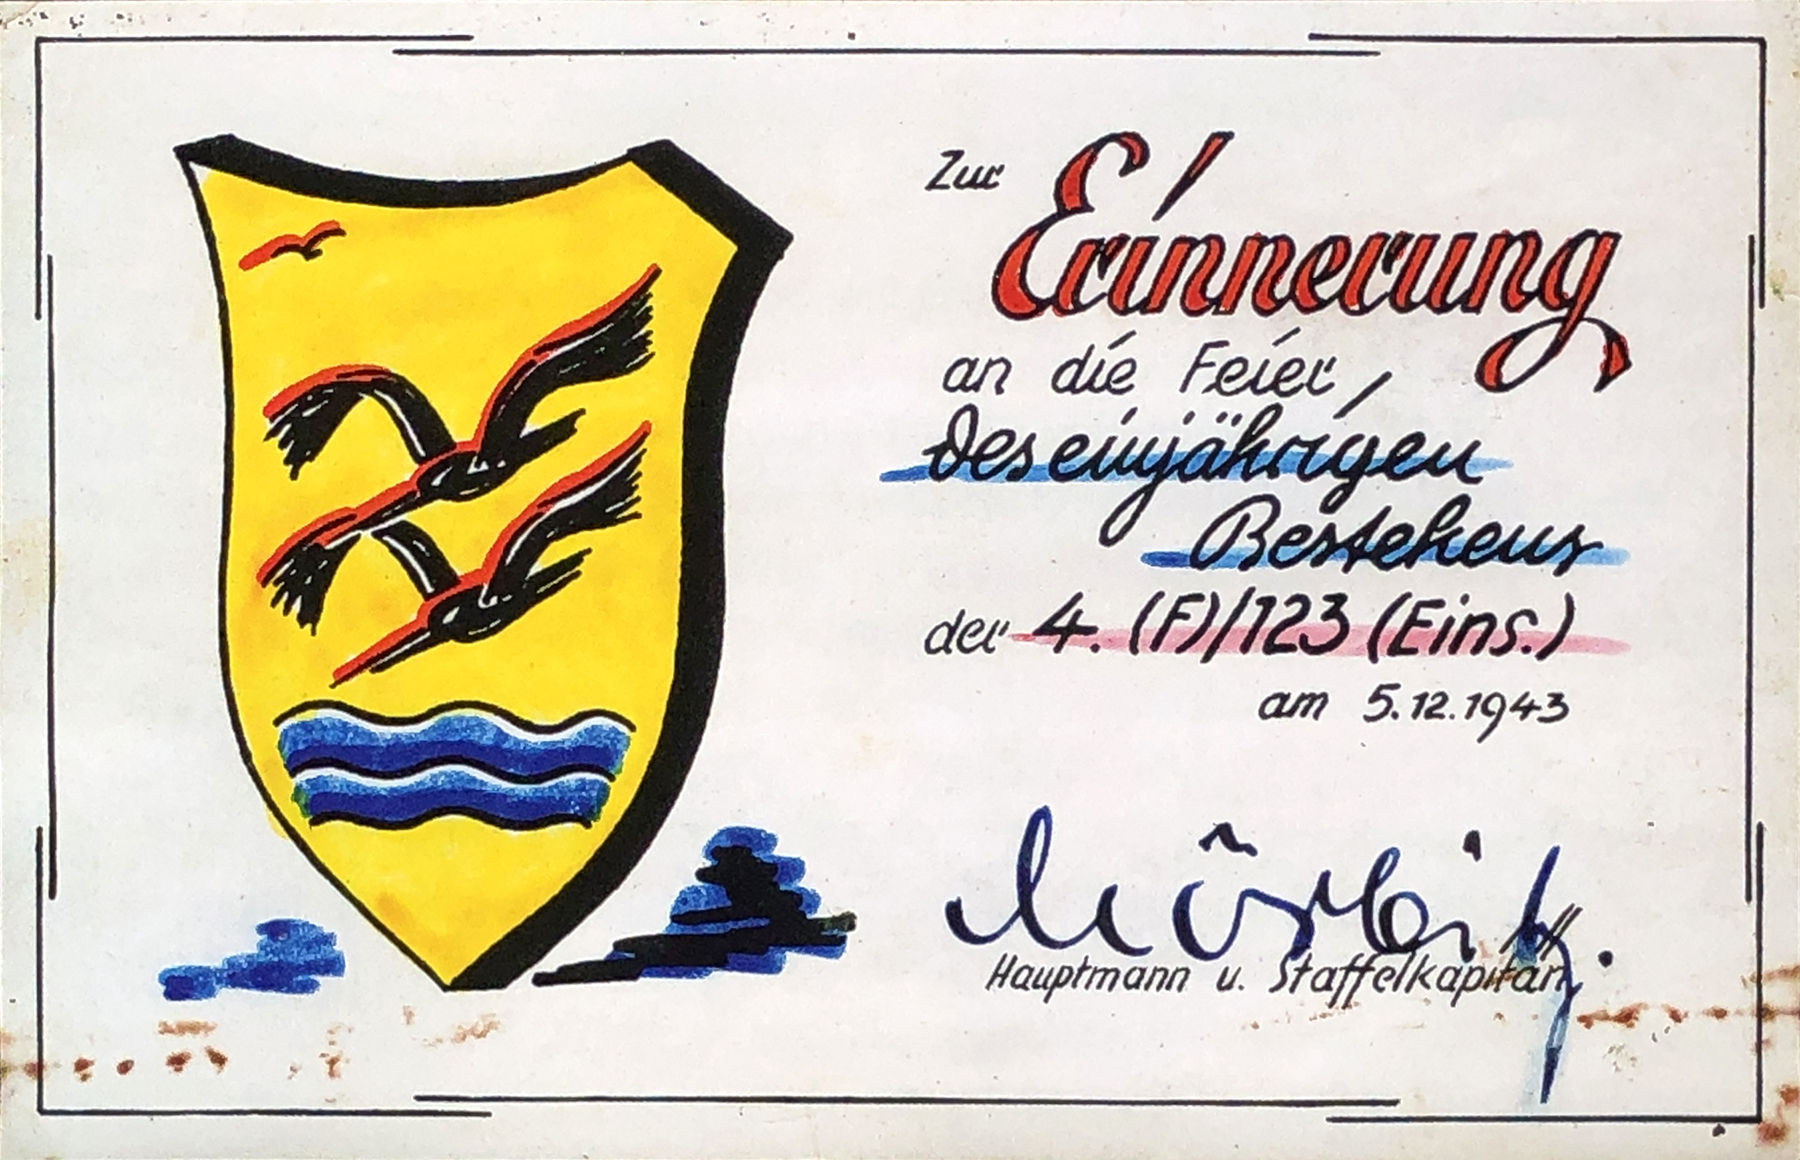 Zur Erinnerung
an die Feier,
des einjährigen
Bestehens
der 4. (F)/123 (Eins.)
am 5.12.1943
Hauptmann u. Staffelkapitän